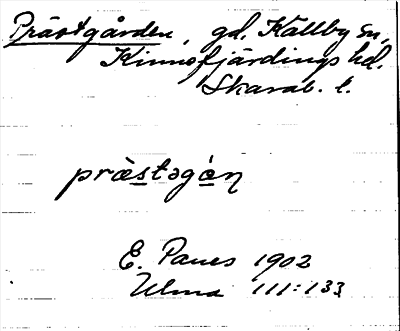 Prästgården, gd. Källby sn,
Kinnefjärdings hd.
Skarab. l.
præ̀stəgɑ́ɳ
E. Panes 1902
Ulma 111:133